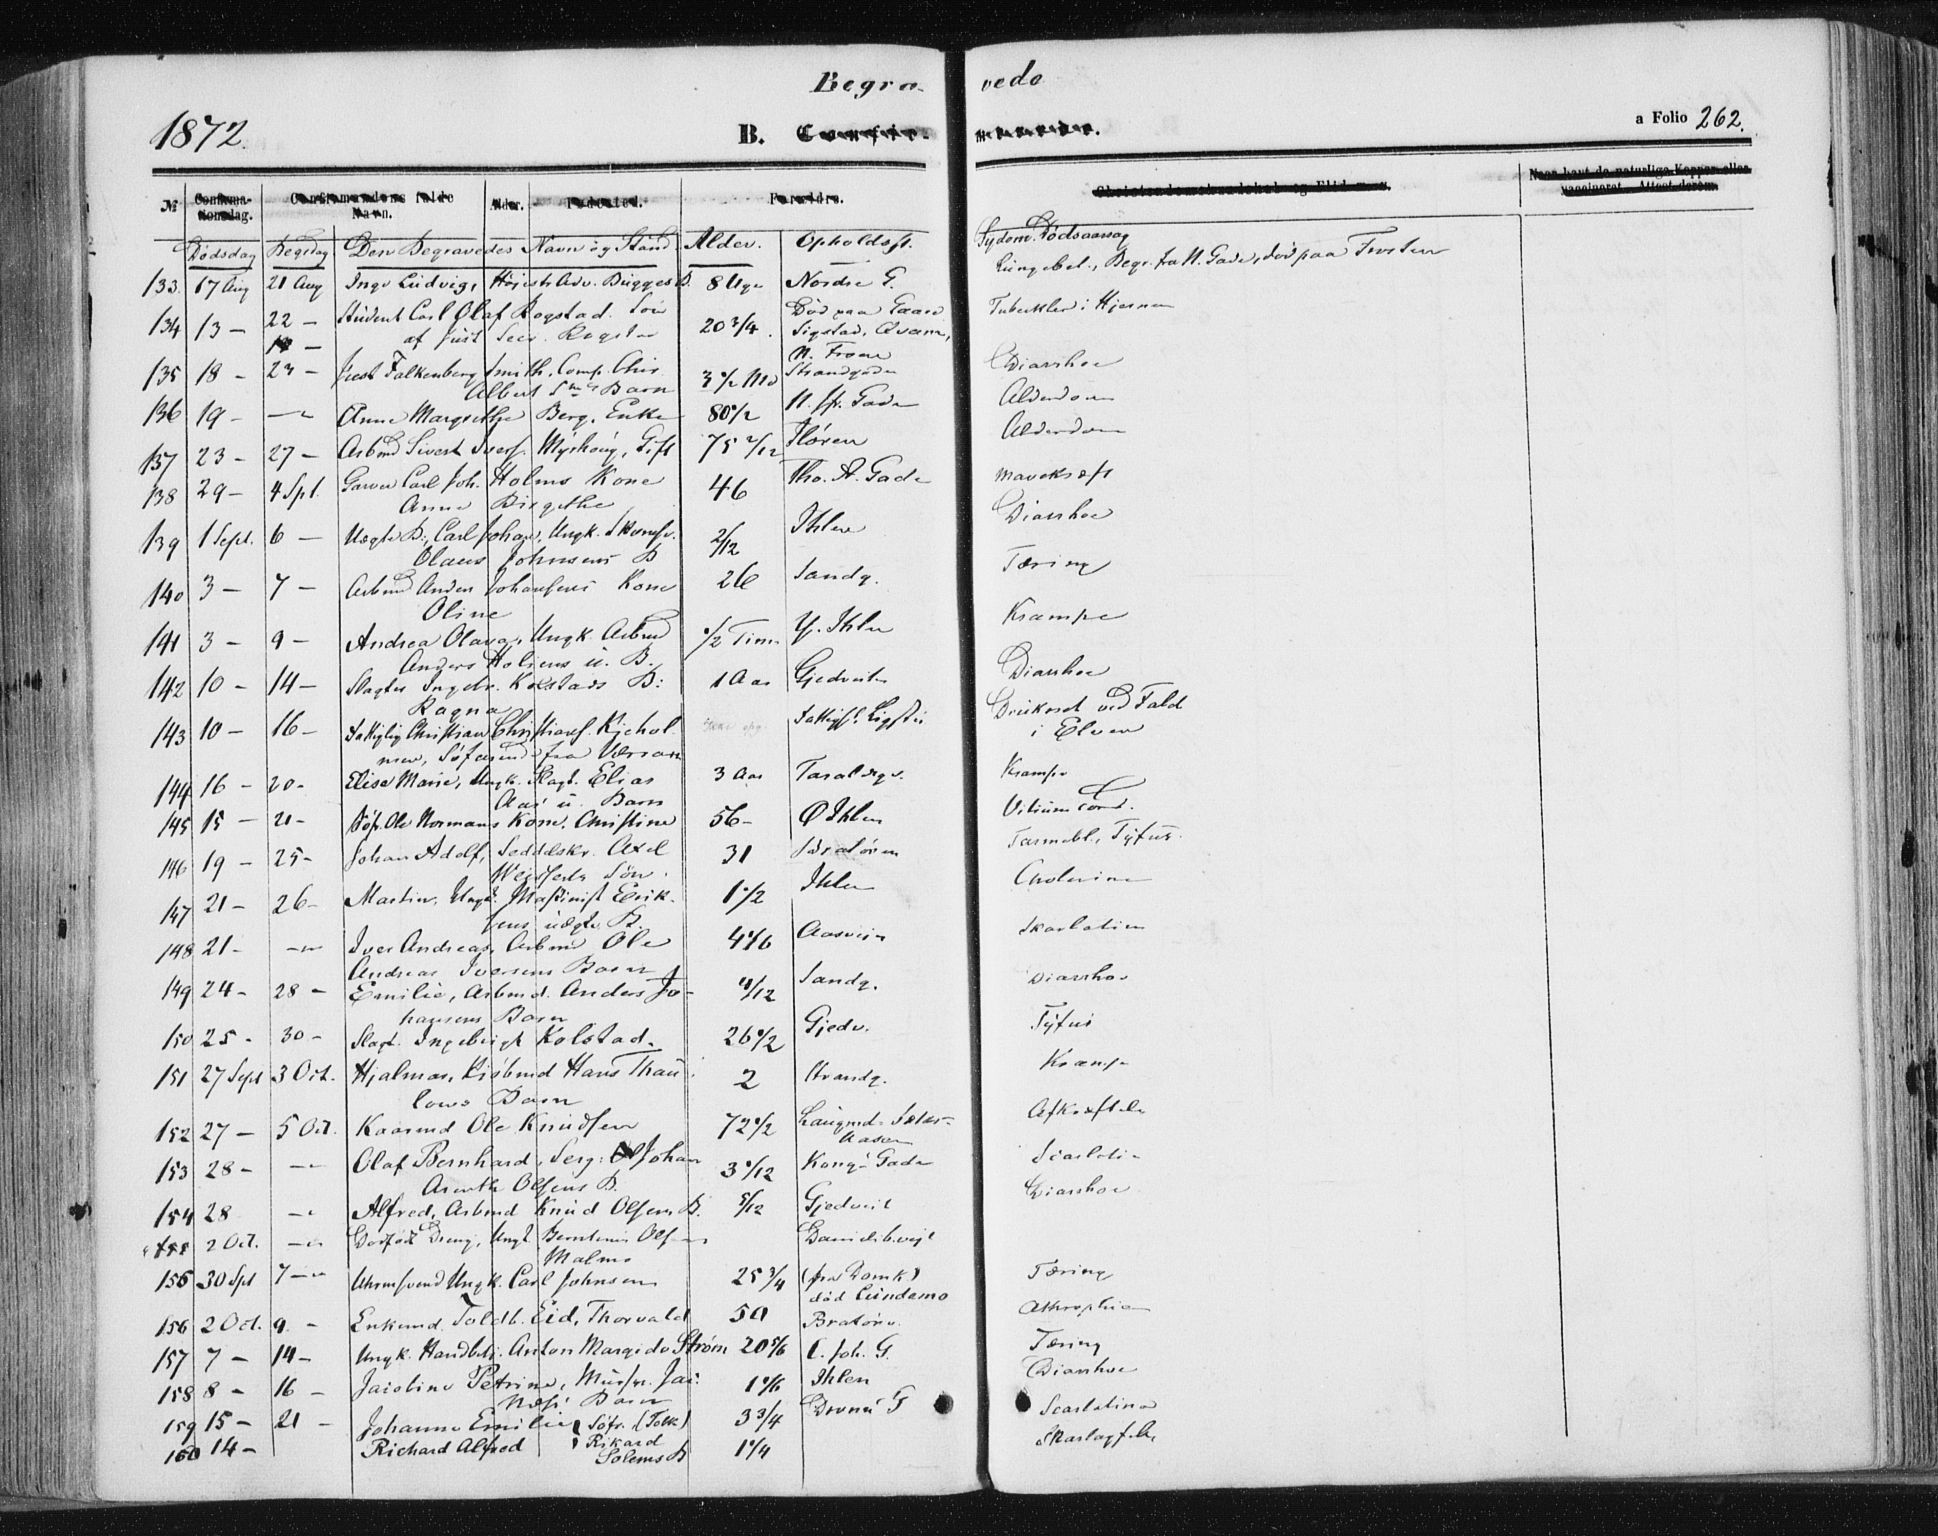 Begra- vede
1872. B. a Folio 262.
№ Confirmationsdag. Confirmandens fulde Navn. Alder. Fødested. Forældre.
Dødsdag Begrdag Den Begravedes Navn og Stand Alder. Opholdsst. Sygdom. Dødsaarsag
133. 17 Aug 21 Aug Ingv Ludvig, Højestr Adv. Bugges B. 8 Uger Nordre G. Lungebet., Begr. fra N. Gade, død paa Frosten
134 13 – 22 – Student Carl Olaf Rogstad. Søn 20 3/4. Død paa Gaard Tuberkler i Hjernen
af Just Secr. Rogstad Sigstad, Qvam,
N. Fron
135 18 – 23 – Just Falkenberg Smith, Comp. Chir 3 1/2 Md Strandgaden Diarrhoe
Albert Sm Barn
136 19 – –"– Anne Margrethe Berg, Enke 80 1/2 N. Gade Alderdom
137 23 – 27 – Arbmd Sivert Iversen Myrhoug, Gift 75 2/12 Iløren Alderdom
138 29 – 4 Spt. Garver Carl Joh. Holms Kone 46 Tho. A. Gade Mavekræft
Anne Birgithe
139 1 Sept. 6 – Uægte B., Carl Johan, Ungk. 2/12 Ihlen Diarrhoe
Olaus Johnsens B
140 3 – 7 – Arbmd Anders Johansens Kone 26 Sandg. Tæring
Oline
141 3 – 9 – Andrea Olava, Ungk. Arbmd 1/2 Time Y. Ihlen Krampe
Anders Holiens u. B.
142 10 – 14 – Slagter Ingebr. Kolstads B: 1 Aar Gjedveit Diarrhoe
Ragna
143 10 – 16 – Fattiglig Christian Christians. Kjehol Druknet ved Fald
men, fra Værran i Elven
144 16 – 20 – Elise Marie, Ungk. Slagt. Elias 3 Aar Krampe
Aas' u. Barn
145 15 – 21 – Ole Normans Kone, Christine 56 – Ø Ihlen Vitium Cord.
146 19 – 25 – Johan Adolf, Seddelskr. Axel 31 Tarmebl., Tyfus.
Søn.
147 21 – 26 – Martin, Ungk. Maskinist Erik- 1 1/2 Ihlen Cholerine
sens uægte B.
148 21 – –"– Iver Andreas, Arbmd Ole 4 1/6 Aasveien Skarlatin
Andreas Iversens Barn
149 24 – 28 – Emilie, Arbmd. Anders Jo- 11/12 Sandg. Diarrhoe
hansens Barn
150 25 – 30 – Slagt. Ingebrigt Kolstad. 26 1/2 Gjedv. Tyfus
151 27 Sept 3 Oct. Hjalmar, Kjøbmd Hans Thau- 2 Strandg. Krampe
lows Barn
152 27 – 5 Oct. Kaarmd Ole Knudsen 72 1/2 Afkræftelse
153 28 – –"– Olaf Bernhard, Serg: Johan 3 1/12 Kong. Gade Scarlatin
Arenth Olsens B.
154 28 –"– Alfred, Arbmd Knud Olsens B. 5/12 Gjedveit Diarrhoe
2 Oct. –"– Dødfødt Dreng, Ungk. Berntinus Olsen
Malmo
155 30 Spt 7 –"– Uhrmsvend Ungk. Carl Johnsen 25 3/4 (fra Domk) Tæring
død Lundemo
156 2 Oct. 9 – Enkemd. Toldb. Eid, Thorvald 50 Bratøren Athrophia
157 7 – 14 – Ungk. Handbetj. Anton Margido Strøm 20 5/6 C. Joh. G. Tæring
158 8 – 16 – Jacobine Petrine, Murer Jac: 1 1/6 Ihlen Diarrhoe
Næss' Barn
159 15 – 21 – Johanne Emilie Søfr. (Tolk) 3 3/4 Dronn G Scarlatina
160 14 – Richard Alfred Rikard 1 1/4 Skarlagsfeb.
Solems B